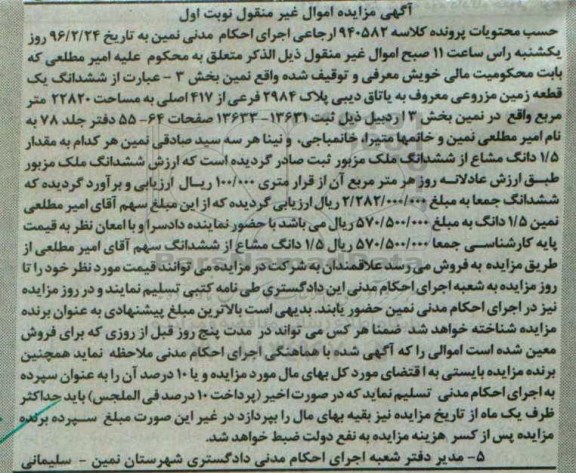 آگهی مزایده اموال غیر منقول نوبت اول
حسب محتویات پرونده کلاسه ۹۴۰۵۸۲ ارجاعی اجرای احکام مدنی نمین به تاریخ ۹۶/۲/۲۴ روز
یکشنبه راس ساعت ۱۱ صبح اموال غیر منقول ذیل الذکر متعلق به محکوم علیه امیر مطلعی که
بابت محکومیت مالی خویش معرفی و توقیف شده واقع نمین بخش ۳ - عبارت از ششدانگ یک
قطعه زمین مزروعی معروف به یاتاق دیبی پلاک ۲۹۸۴ فرعی از ۴۱۷ اصلی به مساحت ۲۲۸۲۰ متر
مربع واقع در نمین بخش ۳ اردبیل ذیل ثبت ۱۳۶۳۱- ۱۳۶۳۳ صفحات ۶۴- ۵۵ دفتر جلد ۷۸ به
نام امیر مطلعی نمین و خانمها متیرا، خانمباجی، و نینا هر سه سید صادقی نمین هر کدام به مقدار
۱/۵ دانگ مشاع از ششدانگ ملک مزبور ثبت صادر گردیده است که ارزش ششدانگ ملک مزبور
طبق ارزش عادلانه روز هر متر مربع آن از قرار متری ۱۰۰/۰۰۰ ریال ارزیابی و برآورد گردیده که
ششدانگ جمعا به مبلغ ۲/۲۸۲/۰۰۰/۰۰۰ ریال ارزیابی گردیده که از این مبلغ سهم آقای امیر مطلعی
نمین ۱/۵ دانگ به مبلغ ۵۷۰/۵۰۰/۰۰۰ ریال می باشد با حضور نماینده دادسرا و با امعان نظر به قیمت
پایه کارشناسی جمعا ۵۷۰/۵۰۰/۰۰۰ ریال ۱/۵ دانگ مشاع از ششدانگ سهم آقای امیر مطلعی از
طریق مزایده به فروش می رسد علاقمندان به شرکت در مزایده می توانند قیمت مورد نظر خود را تا
روز مزایده به شعبه اجرای احکام مدنی این دادگستری طی نامه کتبی تسلیم نمایند و در روز مزایده
نیز در اجرای احکام مدنی نمین حضور یابند. بدیهی است بالاترین مبلغ پیشنهادی به عنوان برنده
مزایده شناخته خواهد شد ضمنا هر کس می تواند در مدت پنج روز قبل از روزی که برای فروش
معین شده است اموالی را که آگهی شده با هماهنگی اجرای احکام مدنی ملاحظه نماید همچنین
برنده مزایده بایستی به اقتضای مورد کل بهای مال مورد مزایده و یا ۱۰ درصد آن را به عنوان سپرده
به اجرای احکام مدنی تسلیم نماید که در صورت اخیر (پرداخت ۱۰ درصد فی المجلس) باید حداکثر
ظرف یک ماه از تاریخ مزایده نیز بقیه بهای مال را بپردازد در غیر این صورت مبلغ سپرده برنده
مزایده پس از کسر هزینه مزایده به نفع دولت ضبط خواهد شد.
۵- مدیر دفتر شعبه اجرای احکام مدنی دادگستری شهرستان نمین - سلیمانی
ParsNamadData